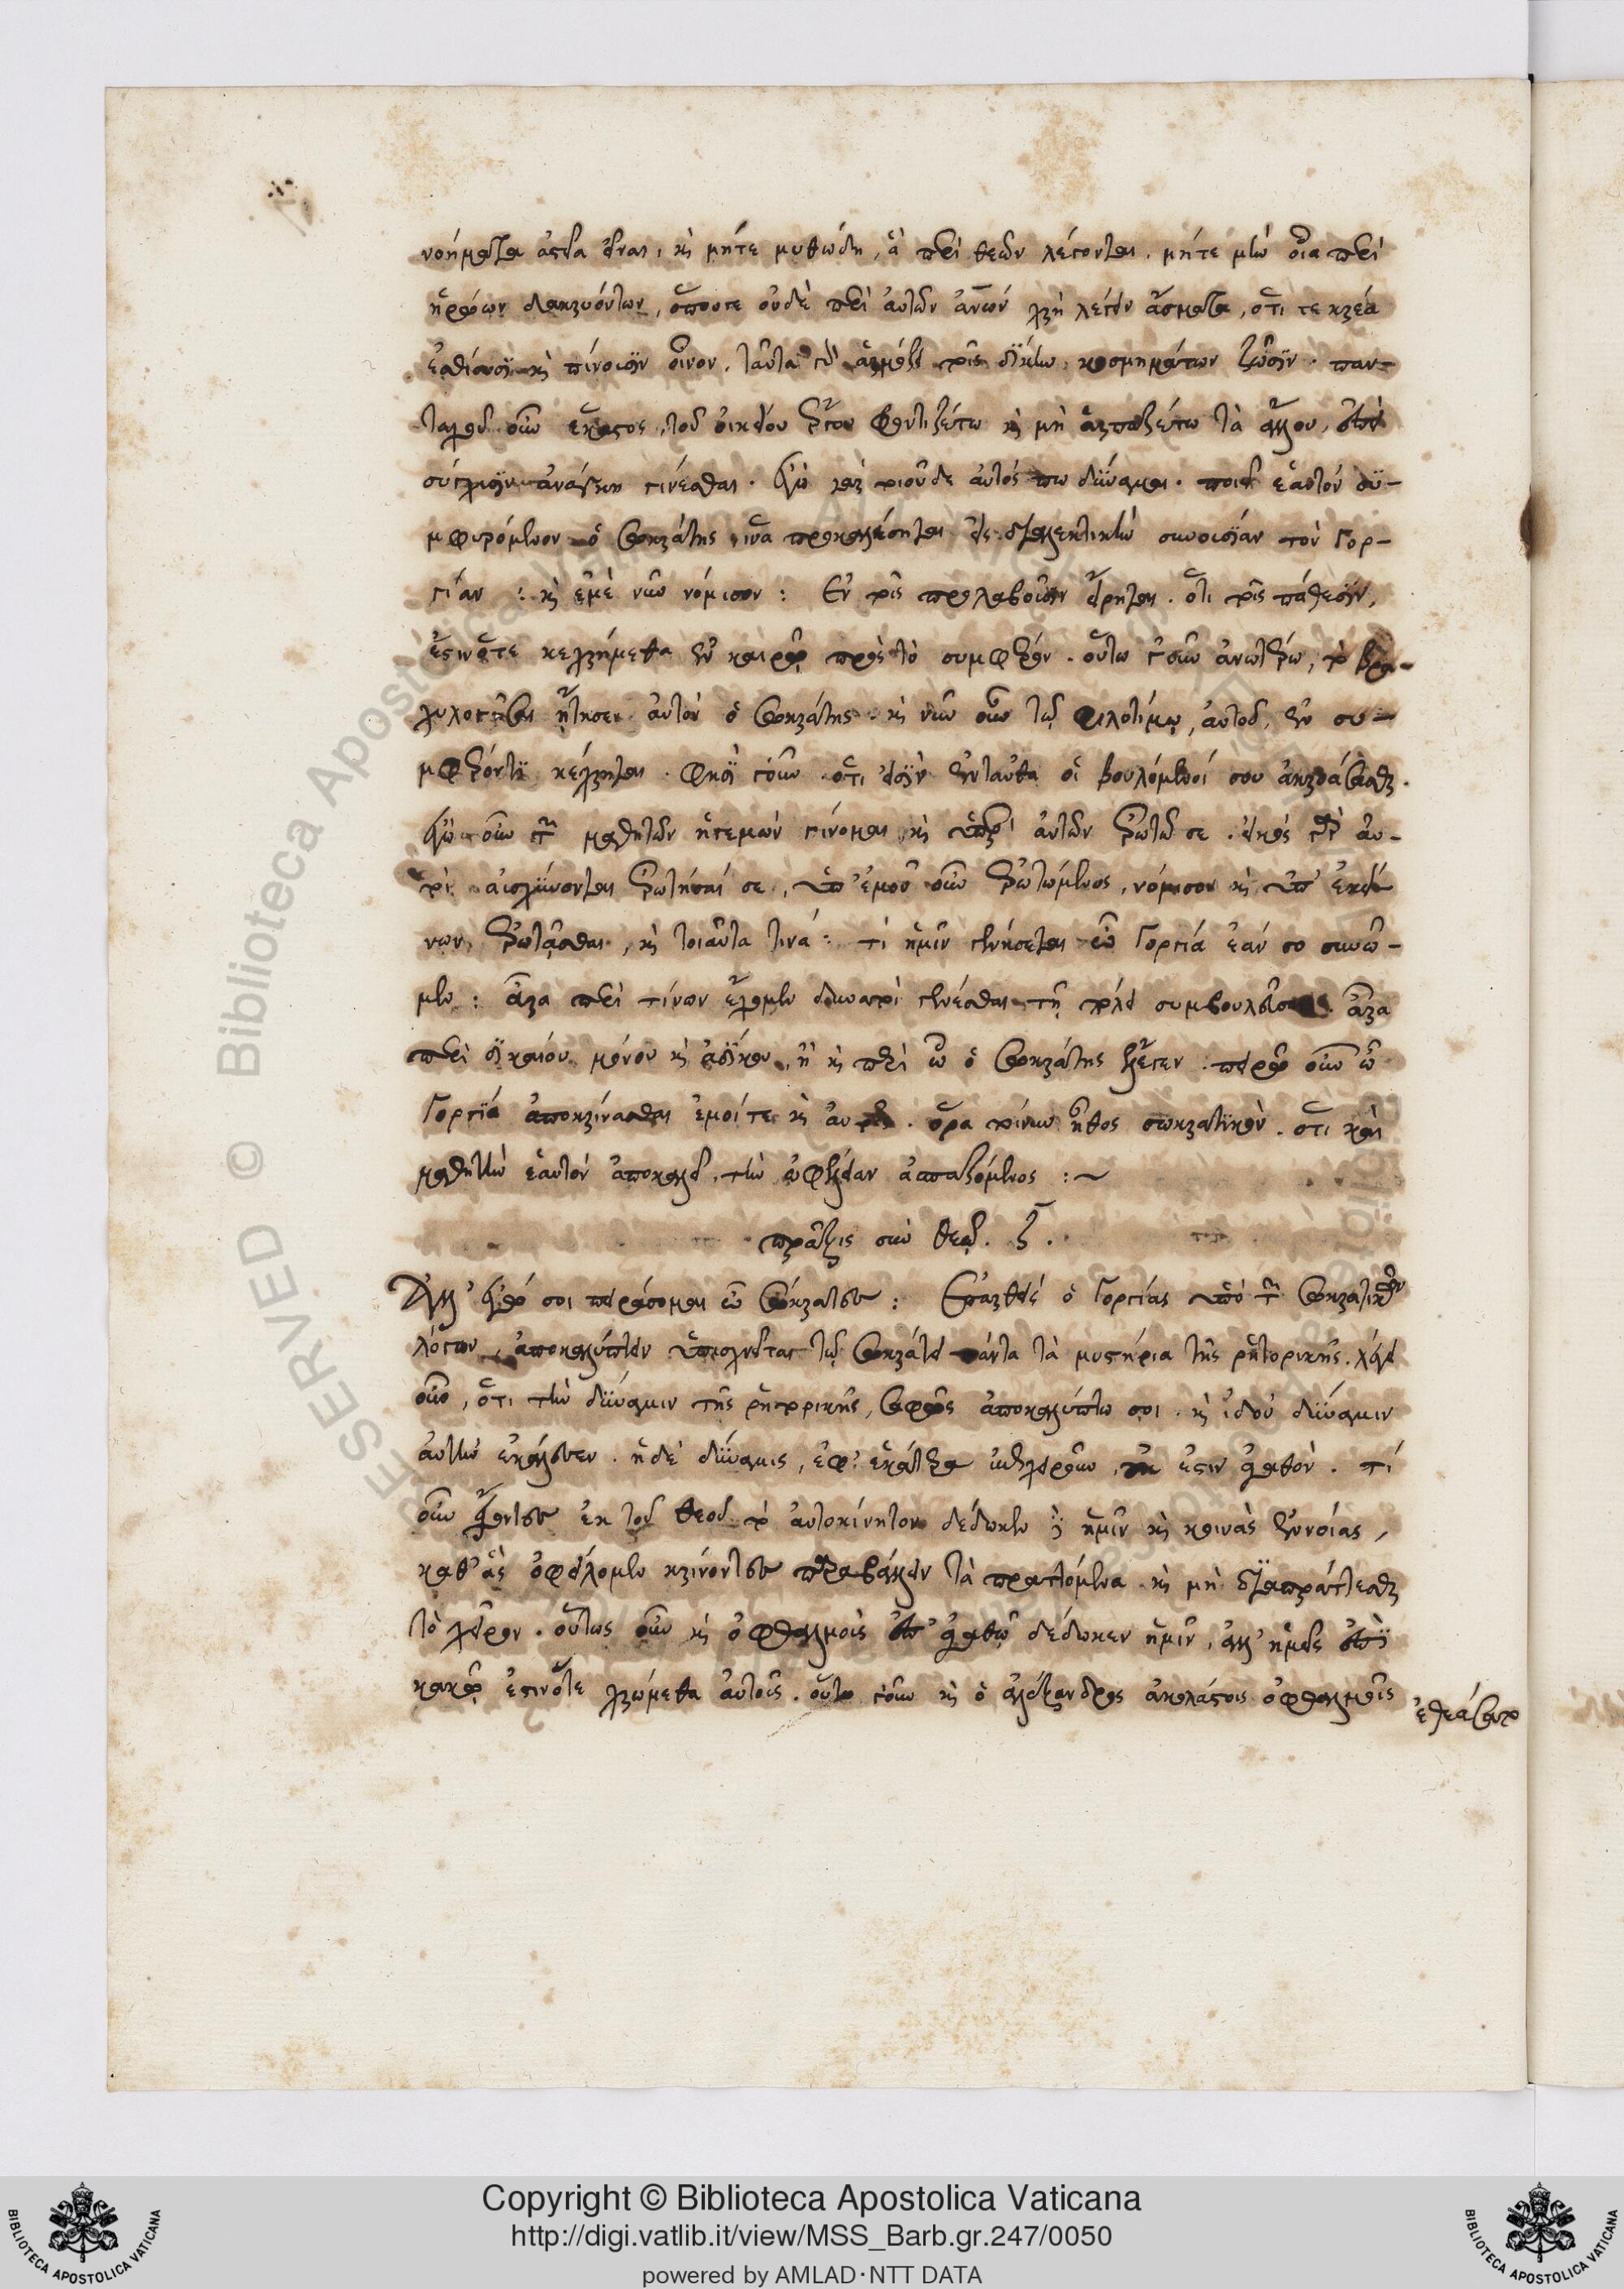 νοήματα ἀστεῖα εἶναι, καὶ μήτε μυθώδη, ἃ περὶ θεῶν λέγονται. μήτε μὴν οἷα περὶ
ἡρώων δακρυόντων, ὅπουτε οὐδὲ περὶ αὐτῶν ἀνθρώπων χρὴ λέγειν ᾄσματα, ὅτι τε κρέα
ἐσθίουσι καὶ πίνουσιν οἶνον. ταῦτα γὰρ ἁρμόζει τοῖς δίκην κοσμημάτων ζῶσιν. παν-
ταχοῦ οὖν ἕκαστος τοῦ οἰκείου ἔργου φροντιζέτω καὶ μὴ ἁρπαζέτω τὰ ἄλλου, ἐπεὶ
σύγχυσιν ἀνάγκη γίνεσθαι. ἐγὼ
μφυρόμενον ὁ Σωκράτης, ἵνα προκαλέσηται εἰς διαλεκτικὴν συνουσίαν τὸν Γορ-
γίαν : καὶ ἐμὲ νῦν νόμισον : Ἐν τοῖς προλαβοῦσιν εἴρηται. ὅτι τοῖς πάθεσιν,
ἔστιν ὅτε κεχρήμεθα ἐν καιρῷ πρὸς τὸ συμφέρον. οὕτω γοῦν ἀνωτέρω, τὸ βρα-
χυλογῆσαι ᾔτησεν αὐτὸν ὁ Σωκράτης. καὶ νῦν οὖν τῷ φιλοτίμῳ αὐτοῦ, ἐν συ-
μφέροντι κέχρηται. φησὶ γοῦν ὅτι εἰσὶν ἐνταῦθα οἱ βουλόμενοί σου ἀκροάσασθαι.
ἐγὼ οὖν τῶν μαθητῶν ἡγεμὼν γίνομαι καὶ ὑπὲρ αὐτῶν ἐρωτῶ σε. εἰκὸς γὰρ αὐ-
τοὶ αἰσχύνονται ἐρωτῆσαί σε, ὑπ' ἐμοῦ οὖν ἐρωτώμενος, νόμισον καὶ ὑπ' ἐκεί
νων ἐρωτᾶσθαι, καὶ τοιαῦτα τινά : τί ἡμῖν γενήσεται ὦ Γοργία ἐάν σο συνῶ-
μεν : ἆρα περὶ τίνων ἔχομεν δυνατοὶ γενέσθαι τῇ πόλει συμβουλεῦσαι. ἆρα
περὶ δικαίου μόνον καὶ ἀδίκου, ἢ καὶ περὶ ὧν ὁ Σωκράτης ἔλεγεν. πειρῶ οὖν ὦ
Γοργία ἀποκρίνασθαι ἐμοί τε καὶ αὐτοῖς. ὅρα τοίνυν ἦθος σωκρατικὸν. ὅτι καὶ
μαθητὴν ἑαυτὸν ἀποκαλεῖ, τὴν ὠφέλειαν ἀσπαζόμενος :~
πρᾶξις σὺν θεῷ. ζ.
Ἀλλ' ἐγώ σοι πειράσομαι ὦ Σώκρατες : Ἐρωτηθεὶς ὁ Γοργίας ὑπὸ τῶν Σωκρατικῶν
λόγων, ἀποκαλύπτειν ὑπισχνεῖται τῷ Σωκράτει πάντα τὰ μυστήρια τῆς ῥητορικῆς. λέγει
οὖν, ὅτι τὴν δύναμιν τῆς ῥητορικῆς, σαφῶς ἀποκαλύπτω σοι. καὶ ἰδοὺ δύναμιν
αὐτὴν ἐκάλεσεν. ἡ δὲ δύναμις, ἐφ' ἑκάτερα ἐπιχειροῦν, οὐκ ἔστιν ἀγαθὸν. τί
οὖν φαντες ἐκ τοῦ θεοῦ τὸ αὐτοκίνητον δέδωκεν ἡμῖν καὶ κοινὰς ἐννοίας,
καθ' ἃς ὀφείλομεν κρίνοντες παραβάλλειν τὰ πραττόμενα καὶ μὴ διαπράττεσθαι
τὸ χεῖρον. οὕτως οὖν καὶ ὀφθαλμοὺς ἐπ' ἀγαθῷ δέδωκεν ἡμῖν, ἀλλ' ἡμεῖς ἐπὶ
κακῷ ἔστιν ὅτε χρώμεθα αὐτοῖς. οὕτω γοῦν καὶ ὁ ἀλέξανδρος ἀκολάστοις ὀφθαλμοῖς
ἐθεάσατο